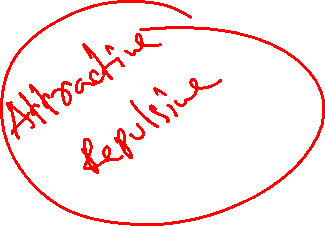 Attractive
Repulsive